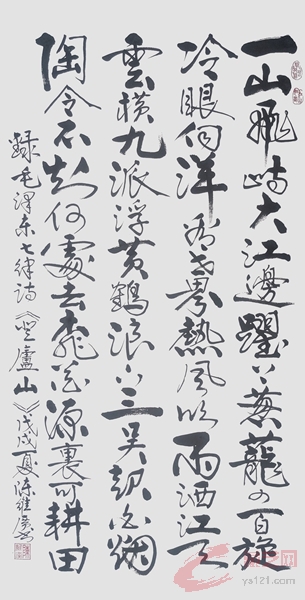 一山飛峙大江邊躍上葱蘢四百旋
冷眼向洋看世界熱風吹雨洒江天
雲橫九派浮黃鶴浪下三吳起白烟
陶令不知何處去桃花源裏可耕田
錄毛澤東七律詩《登廬山》戊戌夏陳維
ys121.com